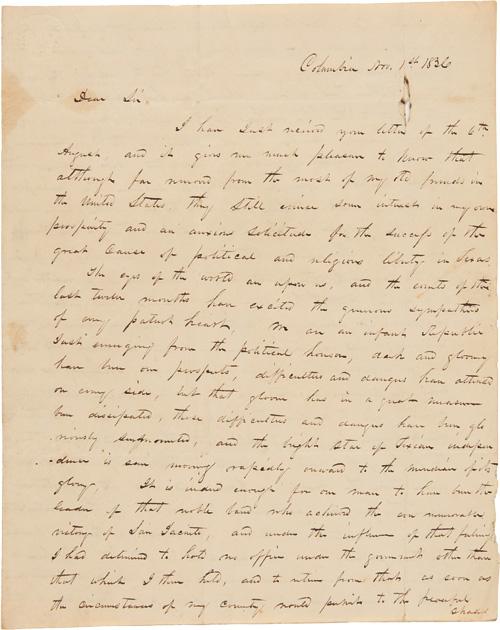 Columbia Nov. 1st 1836
Dear Sir.
I have Just received your letter of the 6th
August and it gives me much pleasure to know that
although far removed from the most of my old friends in
the United States, they Still evince some interest in my own
prosperity and an anxious Solicitude for the success of the
great Cause of political and religious liberty in Texas
The eyes of the world are upon us, and the events of the
last twelve months have excited the generous sympathies
of every patriot heart, We are an infant Republic
Just emerging from the political horison, dark and gloomy
have been our prospects, difficulties and dangers have attended
on every side, but that gloom has in a great measure
been dissipated, these difficulties and dangers have been glo
riously surmounted, and the bright star of Texian indepen
dence is seen moving rapidly onward to the meridian of its
glory. It is indeed enough for one man to have been the
leader of that noble band who achieved the ever memorable
victory of San Jacinto, and under the influence of that feeling
I had determined to hold no office under the government other than
that which I then held, and to retire from that as soon as
the circumstances of my country would permit to the peaceful